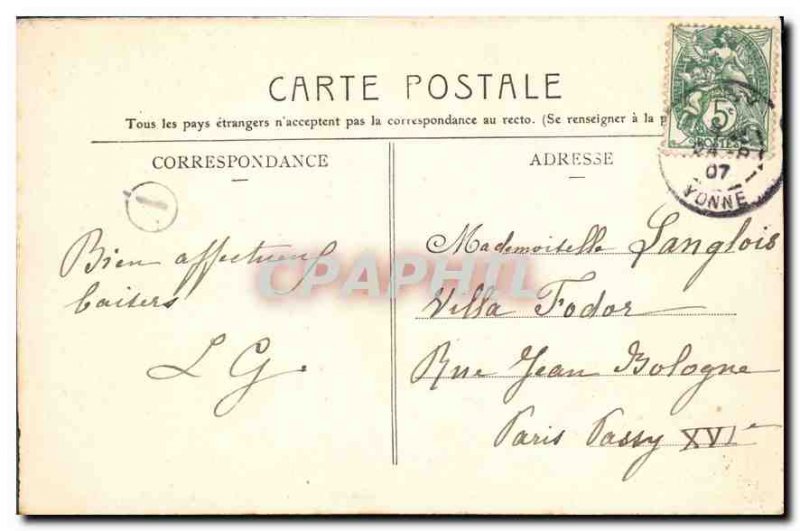 CARTE POSTALE
Tous les pays étrangers n'acceptent pas la correspondance au recto. (Se renseigner à la
CORRESPONDANCE
ADRESSE
5c
POSTES
07
YONNE
1
Bien affectueux
baisers
L G.
Mademoiselle Langlois
Villa Fodor
Rue Jean Bologne
Paris Passy XVIe
CPAPHIL